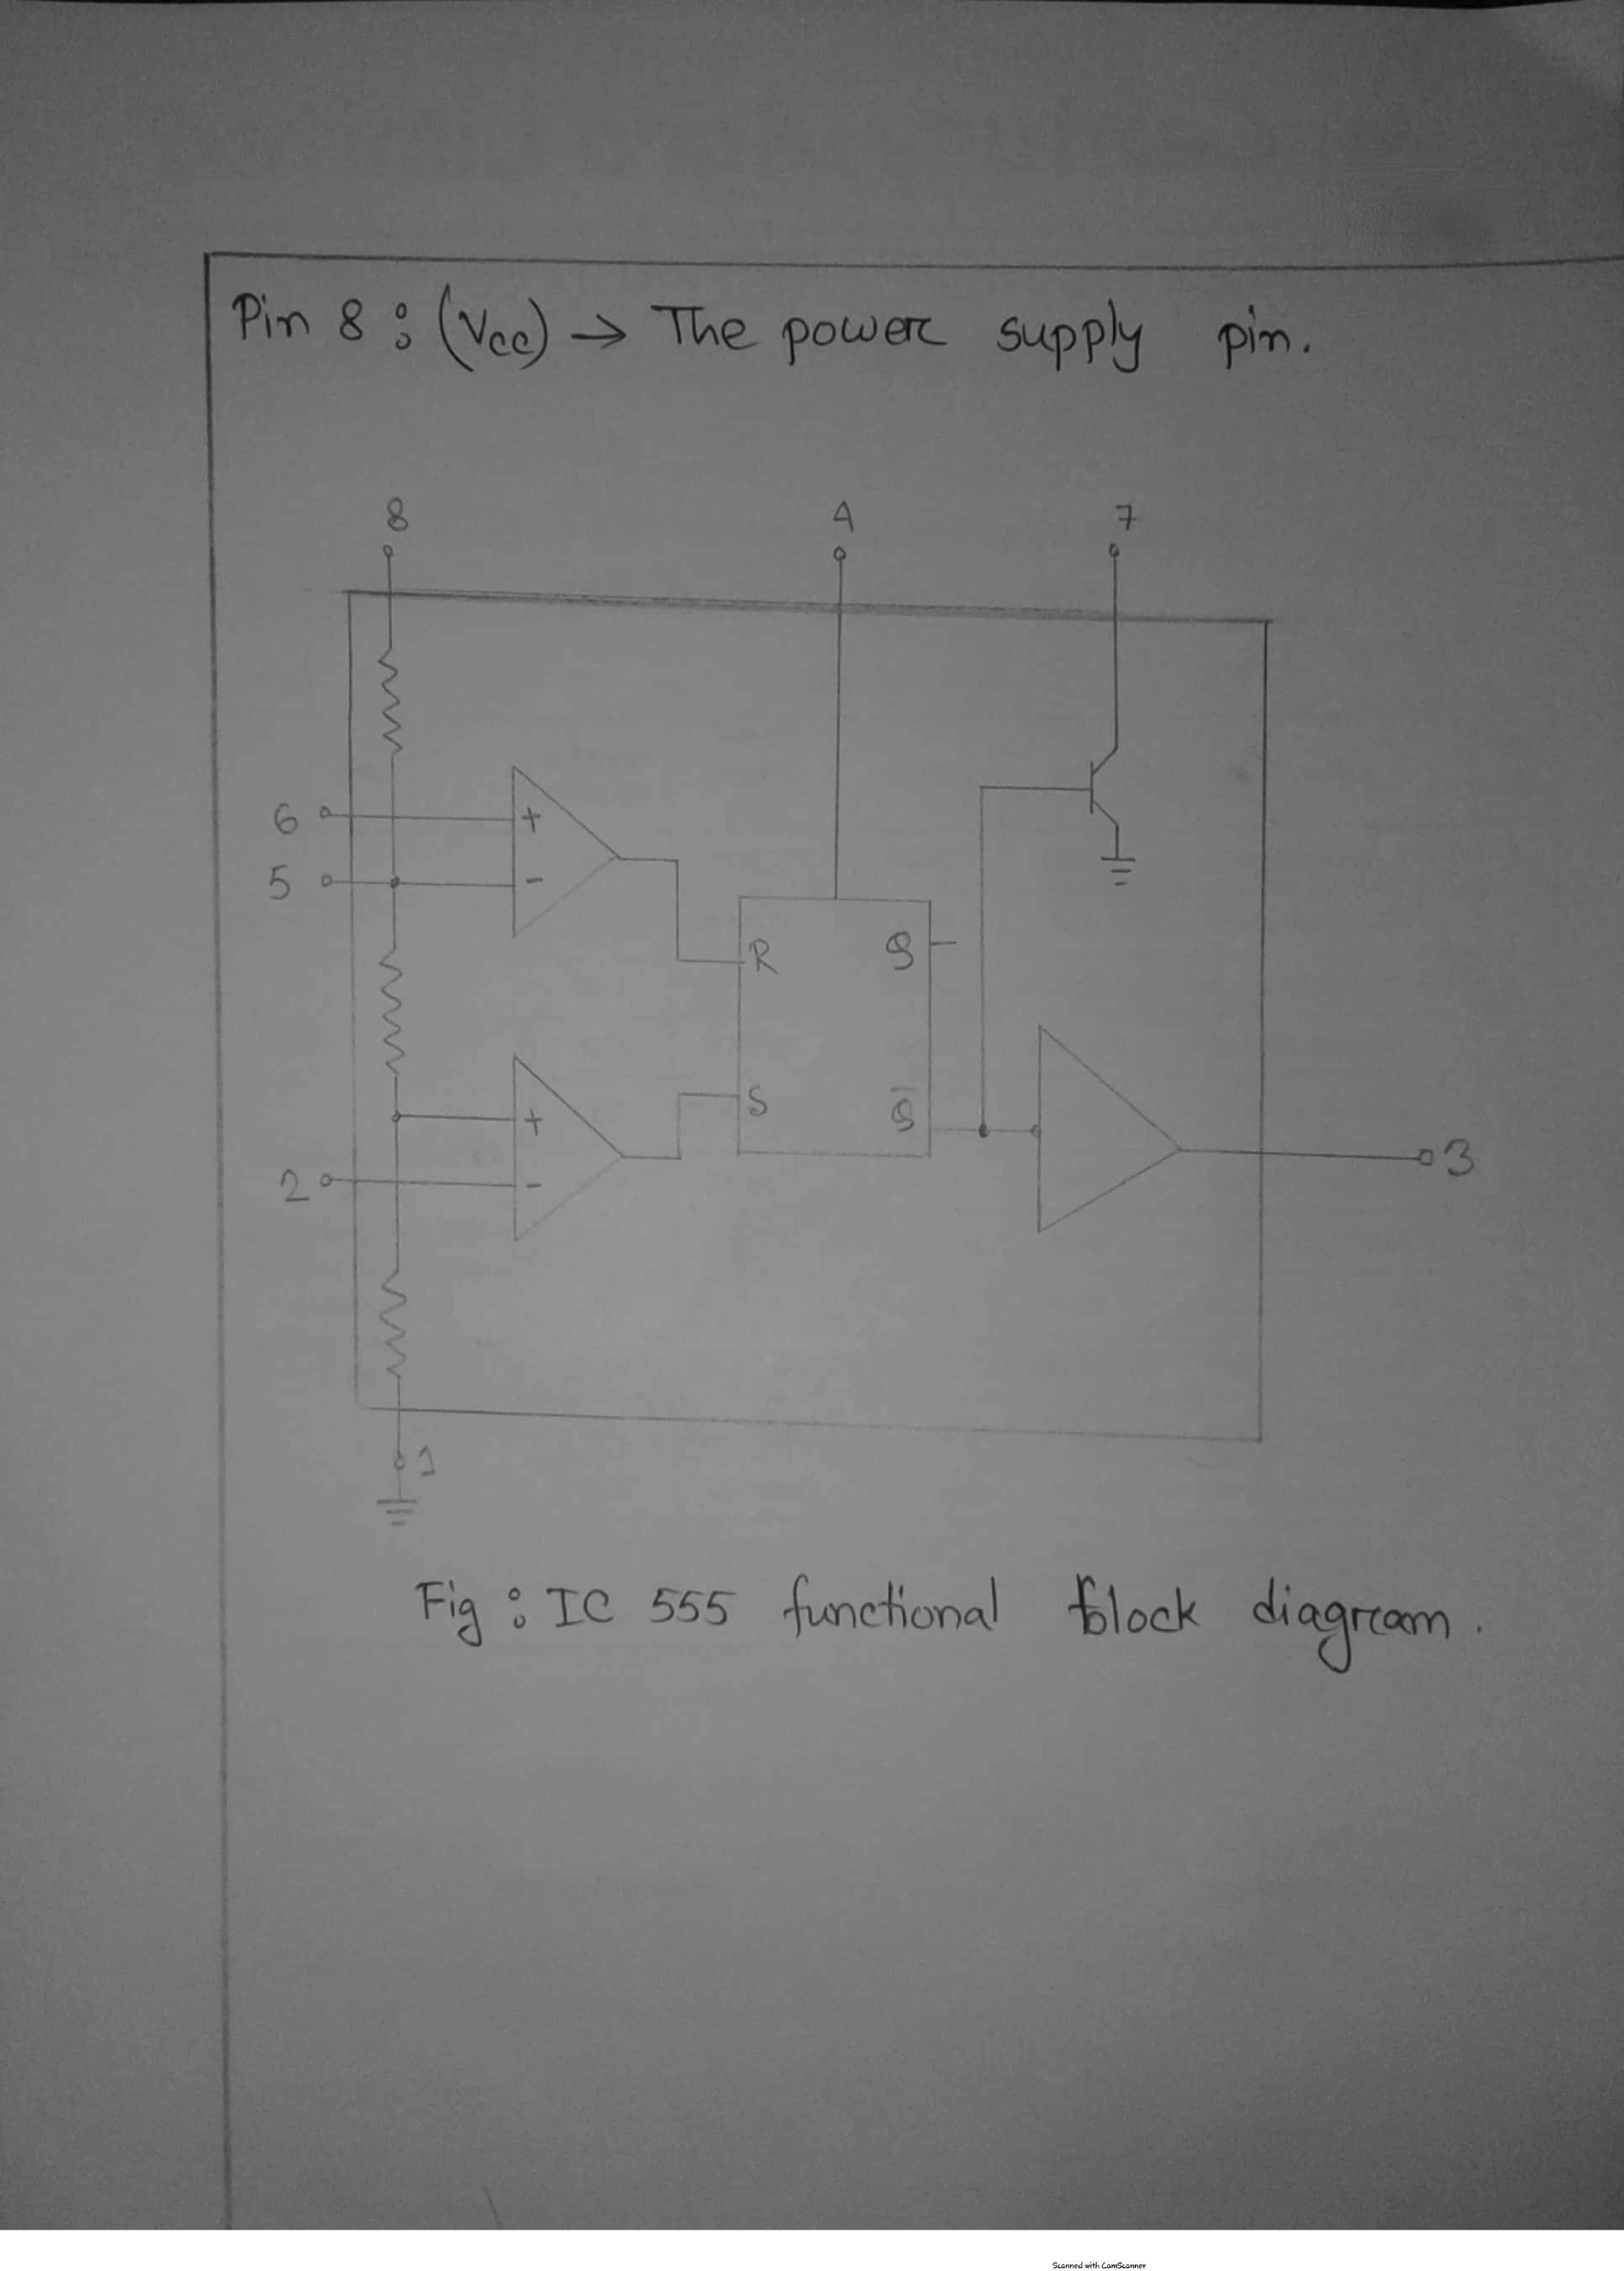 Pin 8 : (Vcc) → The power supply pin.
8 4 7
6 +
5 -
R Q
+ S Q̅
2 - 3
1
Fig : IC 555 functional block diagram.
Scanned with CamScanner